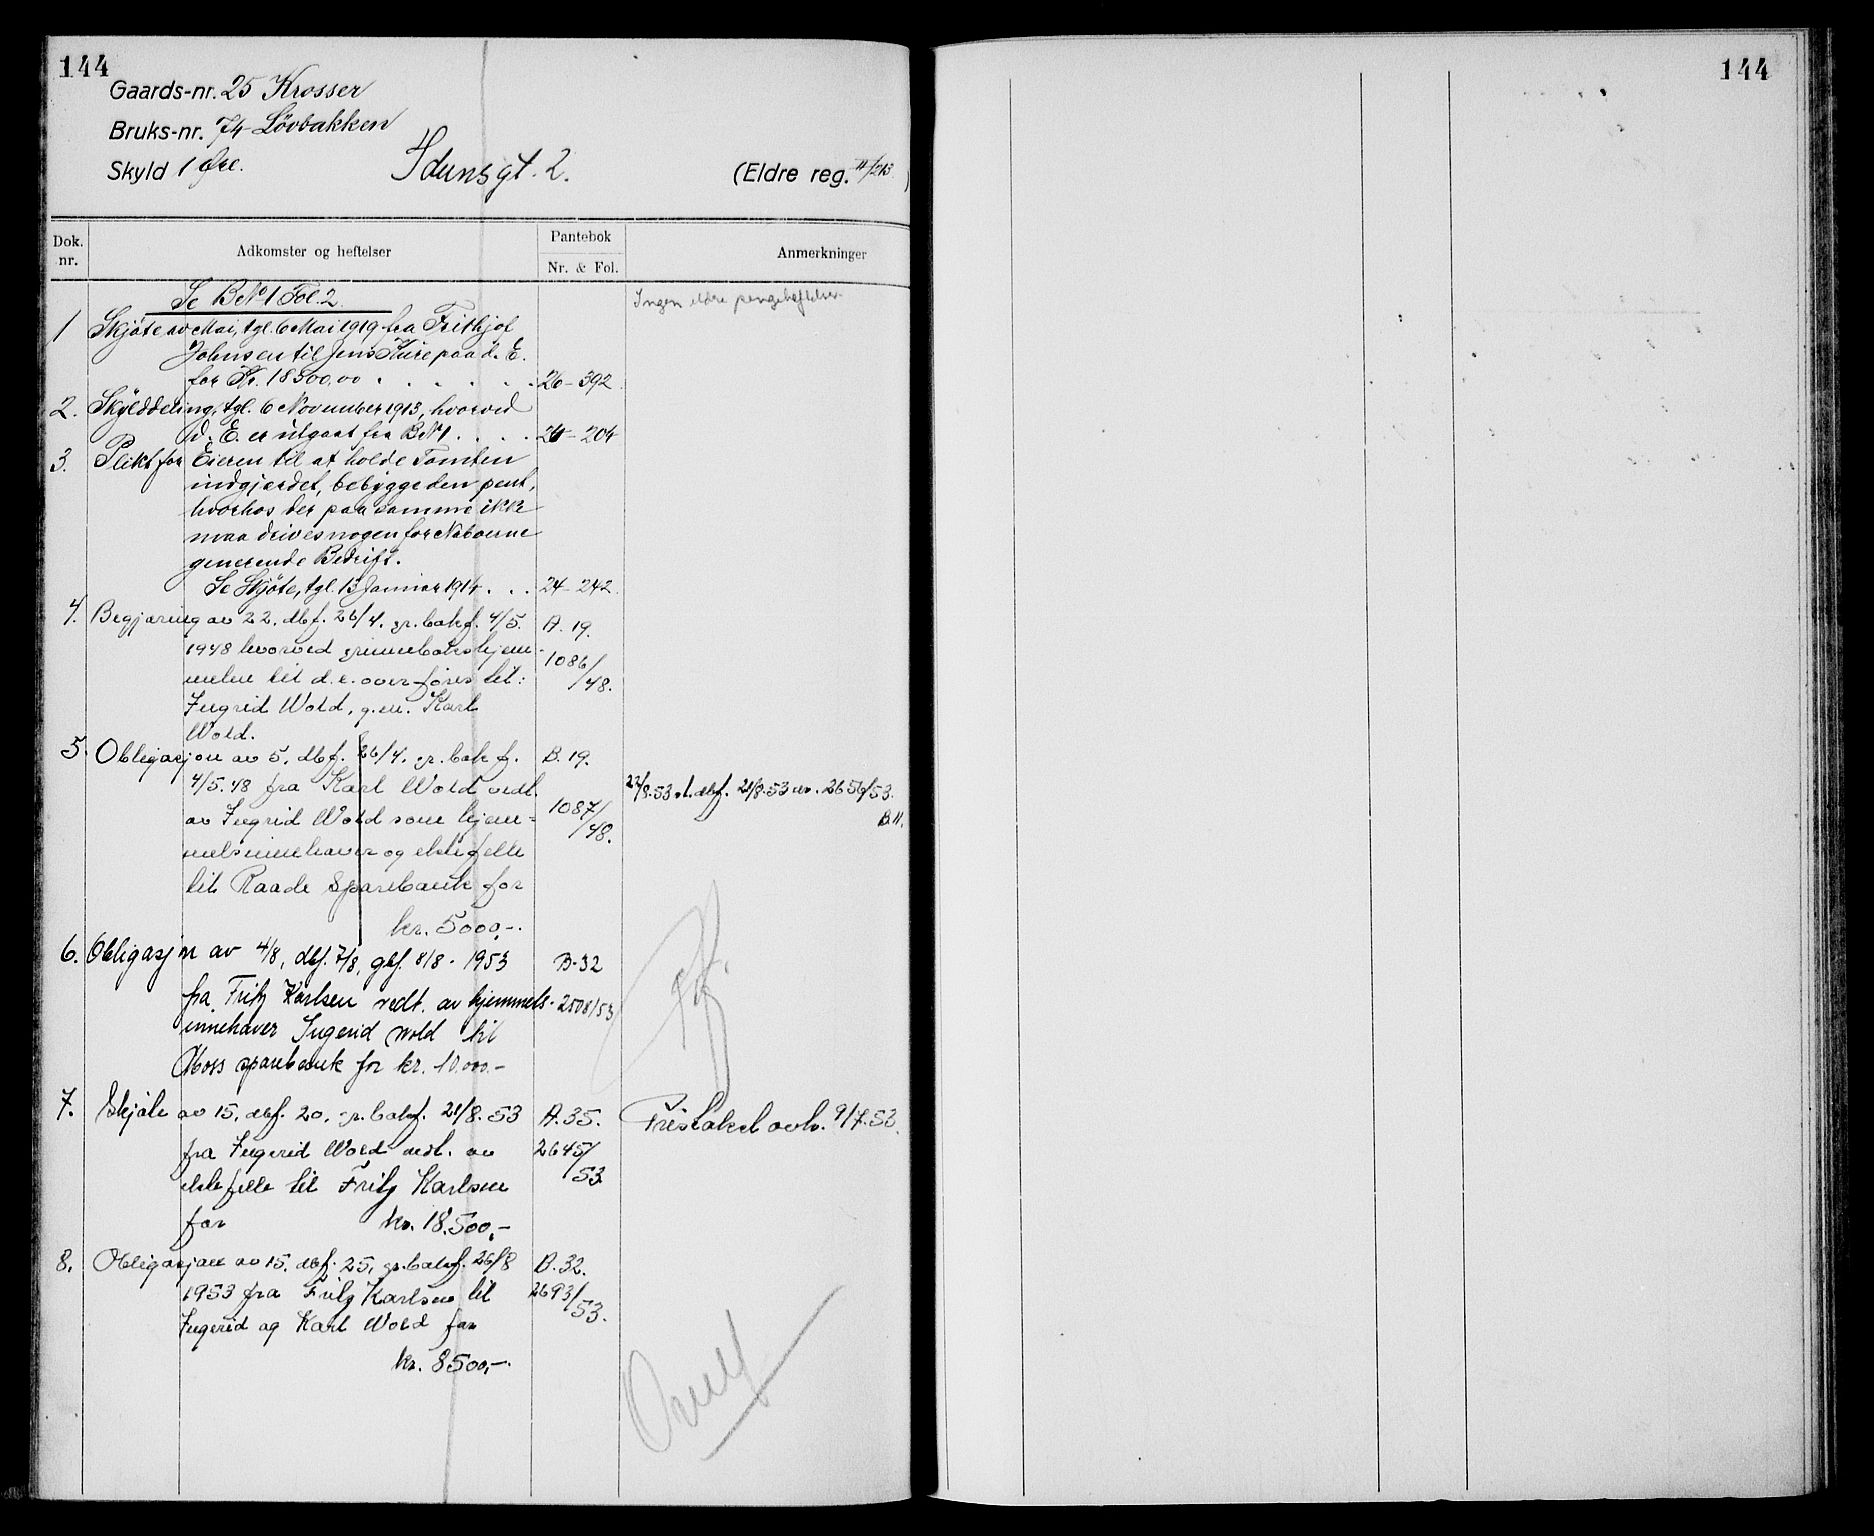 144
Gaards-nr. 25 Krosser
Bruks-nr. 74 Lövbakken
Skyld 1 Øre.
Idunsgt. 2.
(Eldre reg. II/213)
Dok. nr.
Adkomster og heftelser
Pantebok
Nr. & Fol.
Anmerkninger
Se BNo 1 Fol. 2
Ingen eldre pengeheftelser.
1 Skjöte av Mai, tgl. 6 Mai 1919 fra Frithjof
Johnsen til Jens Kure paa d. E.
for Kr. 18500,00 . . . . . . 26-392
2. Skylddeling, tgl. 6 November 1913, hvorved
d. E. er utgaat fra BNo 1 . . . . 24-204
3. Plikt for Eieren til at holde Tomten
indgjerdet, bebygge den pent,
hvorhos der paa samme ikke
maa drives nogen for Naboerne
generende Bedrift.
Se Skjöte, tgl. 13 Januar 1914 . . . 24-242.
4. Begjæring av 22. dbf. 26/4. gr.bokf. 4/5. A. 19.
1948 hvorved grunnbokshjem-
melen til d.e. overföres til: 1086/48.
Ingrid Wold, g.m. Karl
Wold.
5. Obligasjon av 5. dbf. 26/4. gr.bok f. B. 19.
4/5.48 fra Karl Wold vedt.
av Ingrid Wold som hjem- 1087/48.
melsinnehaver og ektefelle
til Raade Sparebank for
kr. 5000,-.
22/8.53 sl. dbf. 21/8.53 nr. 2656/53.
B 11.
6. Obligasjon av 4/8, dbf. 7/8, gbf. 8/8. 1953 B-32
fra Fritz Karlsen vedt. av hjemmels- 2508/53
innehaver Ingerid Wold til
Moss sparebank for kr. 10.000.-
7. Skjöte av 15. dbf. 20. gr.bokf. 21/8.53 A. 35.
fra Ingerid Wold vedt. av 2645/53
ektefelle til Fritz Karlsen
for kr. 18.500,-
Pristakst avh. 9/7.53.
8. Obligasjon av 15. dbf. 25. gr.bokf. 26/8 B. 32.
1953 fra Fritz Karlsen til 2693/53.
Ingerid og Karl Wold for
kr. 8500,-.
144